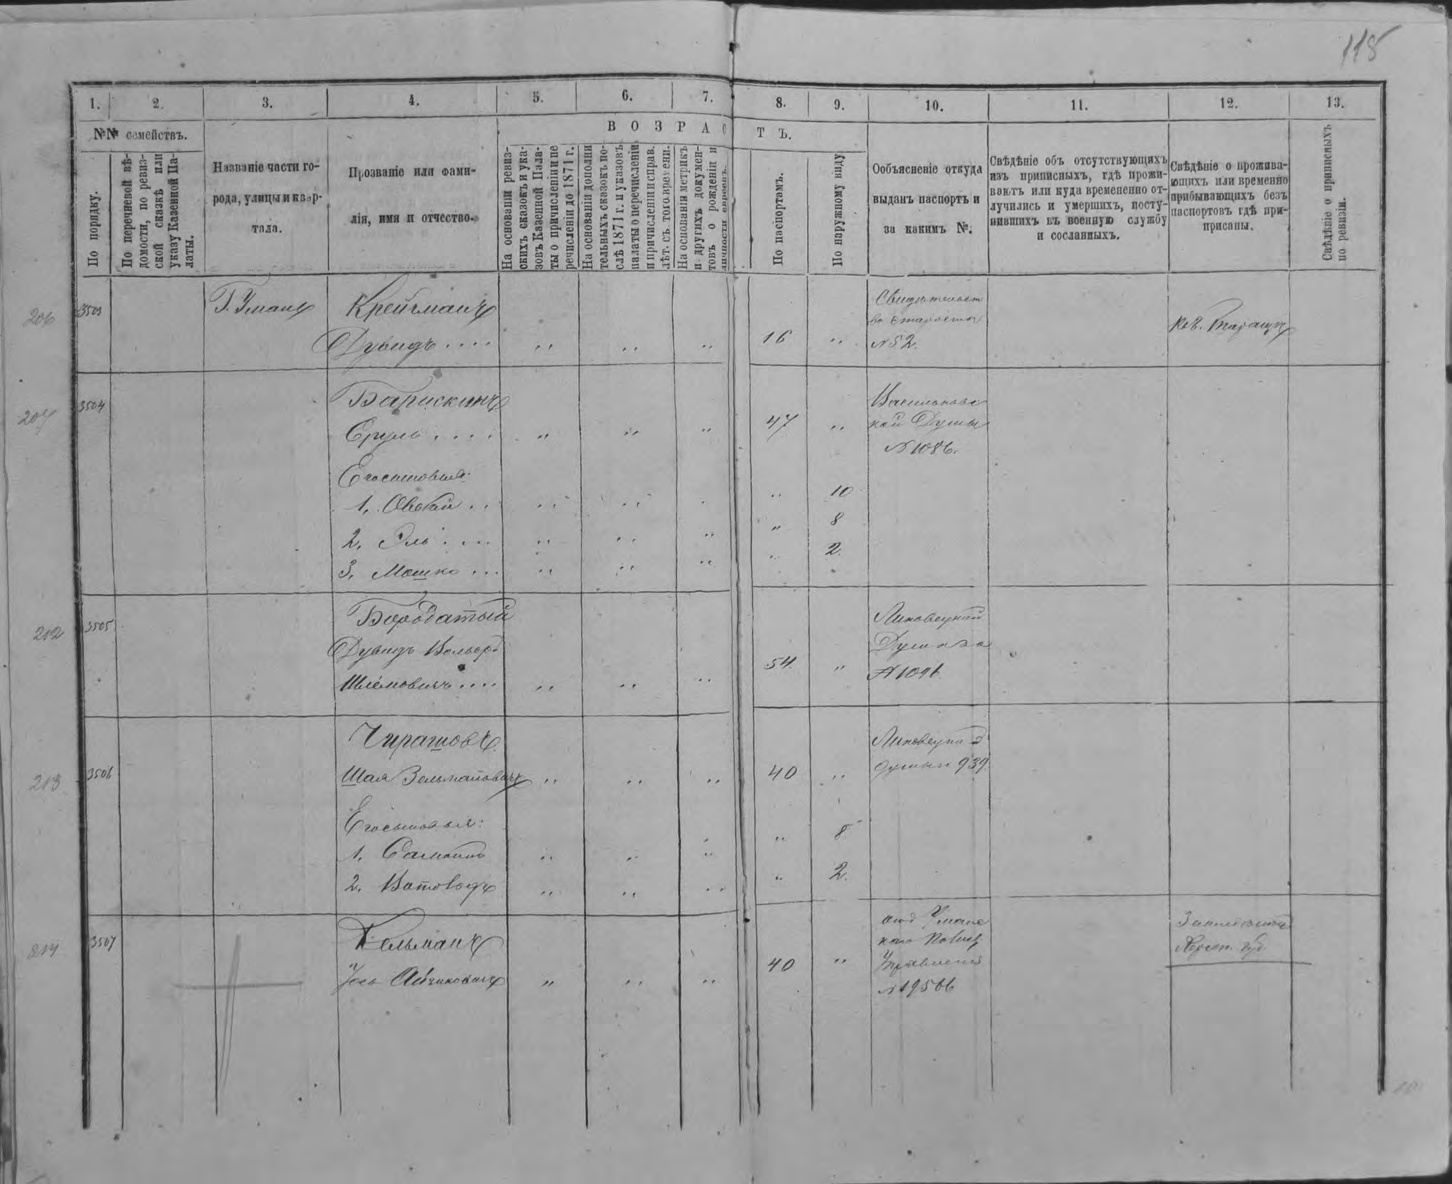 118
1. 2. 3. 4. 5. 6. 7. 8. 9. 10. 11. 12. 13.
№№ семействъ.
По порядку.
По перечневой вѣ-
домости, по ревиз-
ской сказкѣ или
указу Казенной Па-
латы.
Названіе части го-
рода, улицы и квар-
тала.
Прозваніе или фами-
лія, имя и отчество.
ВОЗРАСТЪ.
На основаніи ревиз-
скихъ сказокъ и ука-
зовъ Казенной Пала-
ты о причисленіи и пе
речисленіи до 1871 г.
На основаніи дополни
тельныхъ сказокъ по-
слѣ 1871 г. и указовъ
палаты о перечисленіи
и причисленіи и справ.
лѣт. съ того времени.
На основаніи метрикъ
и другихъ докумен-
товъ о рожденіи и
личности евреевъ.
По паспортамъ.
По наружному виду
Объясненіе откуда
выданъ паспортъ и
за какимъ №.
Свѣдѣніе объ отсутствующихъ
изъ приписныхъ, гдѣ прожи-
ваютъ или куда временно от-
лучились и умершихъ, посту-
пившихъ въ военную службу
и сосланныхъ.
Свѣдѣніе о прожива-
ющихъ или временно
прибывающихъ безъ
паспортовъ гдѣ при-
писаны.
Свѣдѣніе о приписныхъ
по ревизіи.
206 3503 Г. Умань Крейчманъ
Дувидъ 16 Свидѣтельст
во старосты
№ 52. Кіев. Таращи
207 3504 Барискинъ
Сруль 47 Васильковс
кой Думы
№ 1086.
Его сыновья:
1. 10
2. 8
3. Мошко 2.
212 3505 Бородатый
Дувидъ Вольф
Шлемовичъ 54. Липовецкой
Думы за
№ 1096
213 3506 Чирашовъ
Шая Зельмановичъ 40 Липовецкой
думы 939
Его сыновья:
1. 8
2. 2.
214 3507 Гельманъ
Іось Айзиковичъ 40 отд. Уманс
каго Полиц
Управленія
№ 19506
Херсон. губ.